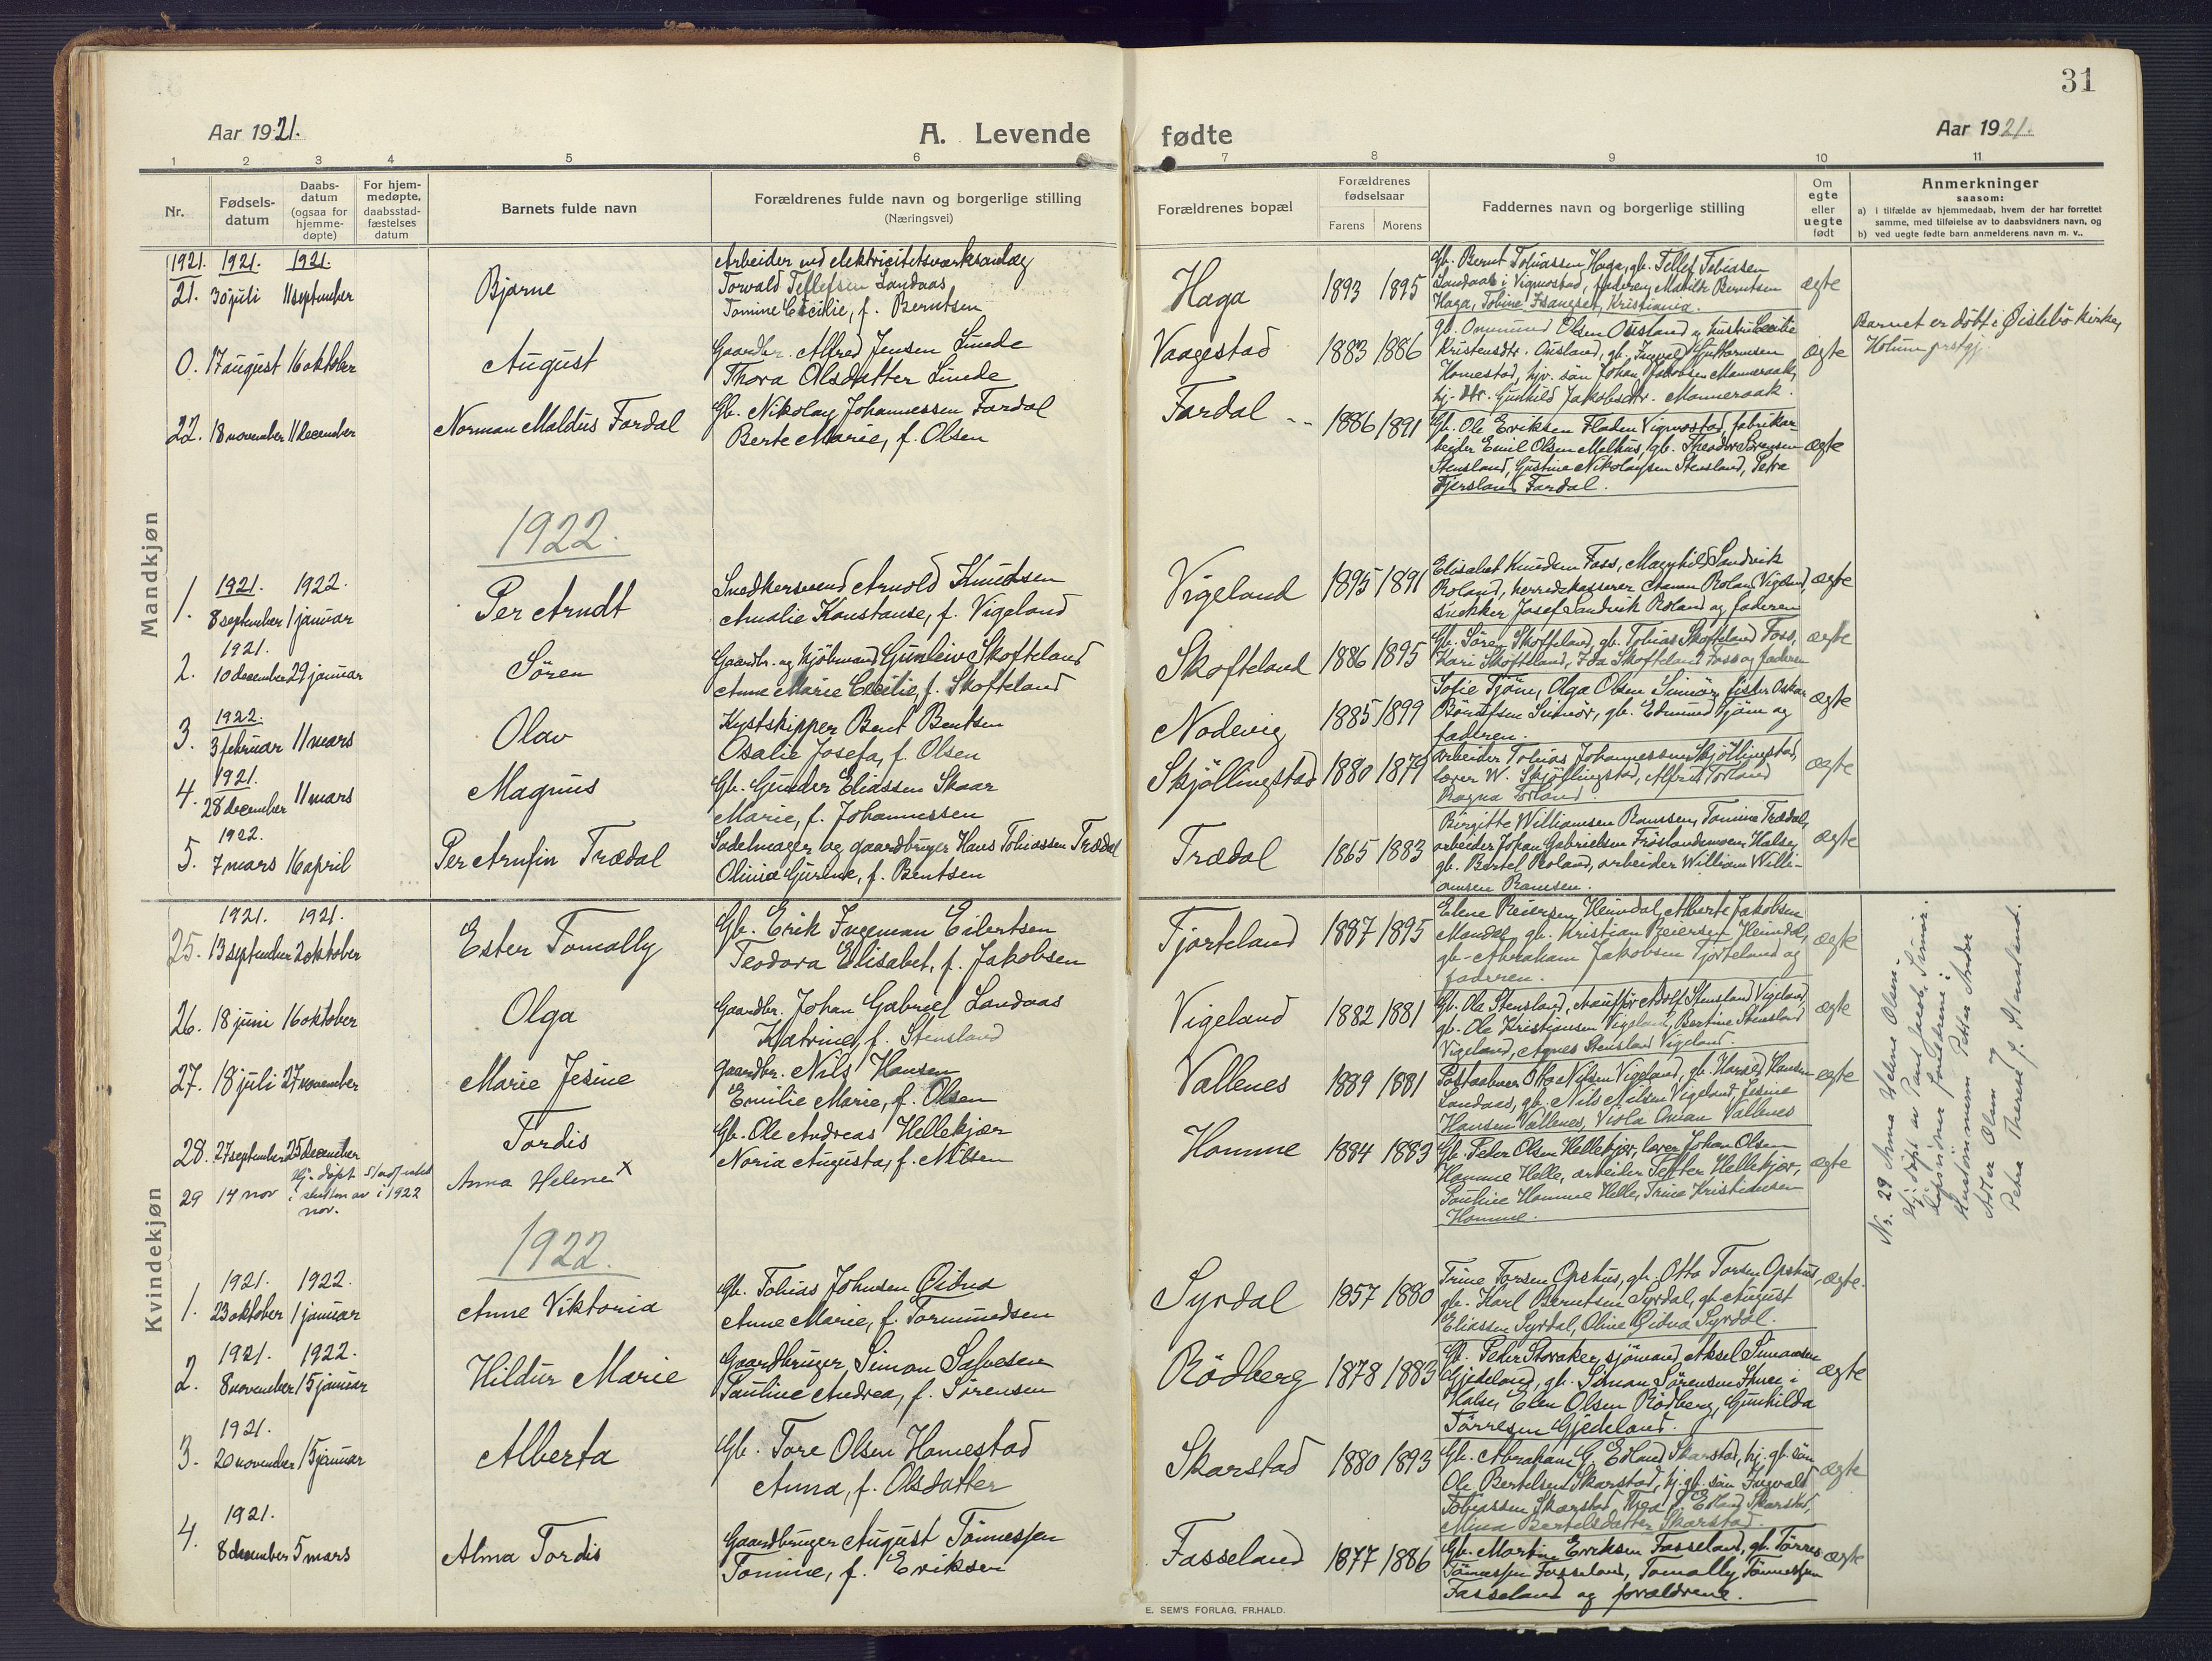 31
Aar 1921.
A. Levende fødte
Aar 1921.
1 2 3 4 5 6 7 8 9 10 11
Nr.
Fødsels-
datum
Daabs-
datum
(ogsaa for
hjemme-
døpte)
For hjem-
medøpte,
daabsstad-
fæstelses
datum
Barnets fulde navn
Forældrenes fulde navn og borgerlige stilling
(Næringsvei)
Forældrenes bopæl
Forældrenes
fødselsaar
Farens Morens
Faddernes navn og borgerlige stilling
Om
egte
eller
uegte
født
Anmerkninger
saasom:
a) i tilfælde av hjemmedaab, hvem der har forrettet
samme, med tilføielse av to daabsvidners navn, og
b) ved uegte fødte barn anmelderens navn m. v..
Mandkjøn
1921. 1921. 1921.
21. 30 juli 11 september
Bjarne
Arbeider ved elektricitetsværksanlæg
Torvald Tellefsen Landaas
Tomine Cecilie, f. Berntsen
Haga
1893 1895
Gb. Bernt Tobiassen Haga, gb. Tellef Tobiasen
Landaas i Vigmostad, Matilde Berntsen
Haga, Tobine Isangsen, Kristiania.
ægte
0. 17 august 16 oktober
August
Gaardbr. Alfred Jensen Linde
Thora Olsdatter Linde
Vaagestad
1883 1886
gb. Ommund Olsen Ousland og hustru Cecilie
Kristensdtr. Ousland, gb. Ingvald Guttormsen
Homestad, hjv. søn Johan Jakobsen Manneraak,
hj. dtr. Gunhild Jakobsdtr. Manneraak.
ægte
Barnet er døbt i Øislebö kirke,
Holum prstgj.
22. 18 november 11 december
Norman Maldus Fardal
Gb. Nikolay Johannessen Fardal
Berte Marie, f. Olsen
Fardal
1886 1891
Gb. Ole Eriksen Fladen Vigmostad, fabrikar-
beider Emil Olsen Melhus, gb. Theodor Sørensen
Stensland, Gustine Nikolaysen Stensland, Petra
Fjersland Fardal.
ægte
1922.
1921. 1922.
1. 8 september 1 januar
Per Arndt
Snedkersvend Arnold Knudsen
Amalie Konstanse, f. Vigeland
Vigeland
1895 1891
Elisabet Knudsen Foss, Magnhild Sandvik
Roland, herredskasserer Roland Vigeland,
snekker Josef Sandvik Roland og faderen
ægte
1921.
2. 10 december 29 januar
Sören
Gaardbr. og kjöbmand Gunleiv Skofteland
Anne Marie Cecilie, f. Skofteland
Skofteland
1886 1895
Gb. Sören Skofteland, gb. Tobias Skofteland Foss,
Kari Skofteland, Ida Skofteland Foss og faderen
ægte
1922.
3. 3 februar 11 mars
Olav
Kystskipper Bent Bentsen
Osalie Josefa, f. Olsen
Nodevig
1885 1899
Sofie Tjöm, Olga Olsen fisker Oskar
gb. Edmund Tjöm og
faderen.
ægte
1921.
4. 28 december 11 mars
Magnus
Gb. Gunder Eliassen Skaar
Marie, f. Johannessen
Skjöllingstad
1880 1879
arbeider Tobias Johannessen Skjöllingstad,
lærer W. Skjöllingstad, Alfred Torland
Ragna Torland.
ægte
1922.
5. 7 mars 16 april
Per Arnfin Trædal
Sadelmager og gaardbruger Hans Tobiassen Trædal
Olivia Gurine, f. Bentsen
Trædal
1865 1883
Birgitte Williamsen Ramssen, Tomine Trædal,
arbeider Johan Gabrielsen Fröslandsmoen Halse,
gb. Bertel Roland, arbeider William Willi-
amsen Ramsen.
ægte
Kvindekjøn
1921. 1921.
25. 13 september 2 oktober
Ester Tomally
Gb. Erik Ingeman Eilertsen
Teodora Elisabet, f. Jakobsen
Tjorteland
1887 1895
Elene Reiersen Heimdal, Alberte Jakobsen
Mandal, gb. Kristian Reiersen Heimdal,
gb. Abraham Jakobsen Tjorteland og
faderen.
ægte
26. 18 juni 16 oktober
Olga
Gaardbr. Johan Gabriel Landaas
Katrine, f. Stensland
Vigeland
1882 1881
Gb. Ole Stensland, Adolf Stensland Vigeland,
gb. Ole Kristiansen Vigeland, Bertine Stensland
Vigeland, Agnes Stensland Vigeland.
ægte
27. 18 juli 27 november
Marie Jesine
gaardbr. Nils Hansen
Emilie Marie, f. Olsen
Vallenes
1889 1881
Postaabner Otto Nilsen Vigeland, gb. Harald Hansen
Landaas, gb. Nils Nilsen Vigeland, Jesine
Hansen Vallenes, Viola Vallenes
ægte
28. 27 september 25 december
Tordis
Gb. Ole Andreas Hellekjær
Noria Augusta, f. Nilsen
Homme
1884 1883
Gb. Peder Olsen Hellekjær, lærer Johan Olsen
Homme Helle, arbeider Hellekjær,
Pauline Homme Helle, Trine Kristiansen
Homme.
ægte
29 14 nov hj. døpt i slutten av nov. Stadfæstet i 1922
Anna Helene x
Nr. 29 Anna Helene Olsen:
Hj. døpt av Paul Jacobs.
Dåpsvidner forældrene:
Petter Andor
Olsen
Petra Therese f. Stensland.
1922.
1921. 1922.
1. 23 oktober 1 januar
Anne Viktoria
Gb. Tobias Johnsen Eidna
Anne Marie, f. Tormundsen
Syrdal
1857 1880
Trine Torsen Opshus, gb. Otto Torsen Opshus,
gb. Karl Berntsen Syrdal, gb August
Eliassen Syrdal, Oline Eidna Syrdal.
ægte.
1921. 1922.
2. 8 november 15 januar
Hildur Marie
Gaardbruger Simon Salvesen
Pauline Andrea, f. Sørensen
Rödberg
1878 1883
Gb. Peder Storaker, sjömand Aksel Simonsen
Gjedeland, gb. Simon Sörensen i
Halse, Elen Olsen Rödberg, Gunhilda
Tørresen Gjedeland.
ægte
1921.
3. 20 november 15 januar
Alberta
Gb. Tore Olsen Homestad
Anna, f. Olsdatter
Skarstad
1880 1893
Gb. Abraham G. Edland Skarstad, hj. gb. søn
Ole Bertelsen Skarstad, hj. gb. søn Ingvald
Tobiassen Skarstad, Thea J. Edland Skarstad,
Mina Bertelsdatter Skarstad.
ægte
1921.
4. 8 december 5 mars
Alma Tordis
Gaardbruger August Tönnessen
Tomine, f. Eriksen
Fasseland
1877 1886
Gb. Martin Eriksen Fasseland, gb. Tørres
Tønnessen Fasseland, Tomally Tönnessen
Fasseland og forældrene.
ægte
E. SEM'S FORLAG, FR.HALD.